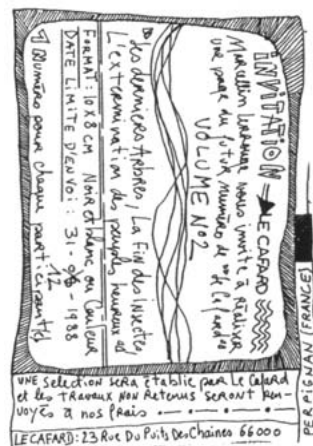 INVITATION → LE CAFARD
Marcellin nous invite à réaliser
une page du futur numéro de Le Cafard
VOLUME N°2
Les derniers Arbres, La Fin des Insectes,
L'extermination des peuples heureux
FORMAT: 10x8 cm Noir et blanc ou Couleur
DATE LIMITE D'ENVOI: 31-12-1988
1 Numéro pour chaque participant(e)
PERPIGNAN (FRANCE)
UNE Sélection SERA établie par Le Cafard
et les travaux non Retenus seront Ren-
voyés à nos frais
LE CAFARD: 23 Rue Du Puits Des Chaines 66000